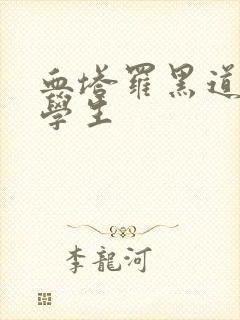 血塔羅黑道
學生
李龍河